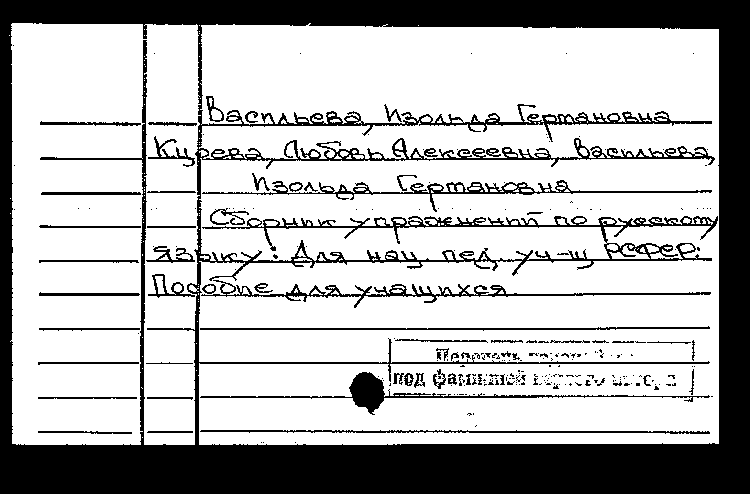 Васильева, Изольда Германовна
Куроева, Любовь Алексеевна, Васильева,
Изольда Германовна
Сборник упражнений по русскому
языку: Для нац. пед. уч-щ РСФСР.
Пособие для учащихся
под фамилией первого автора